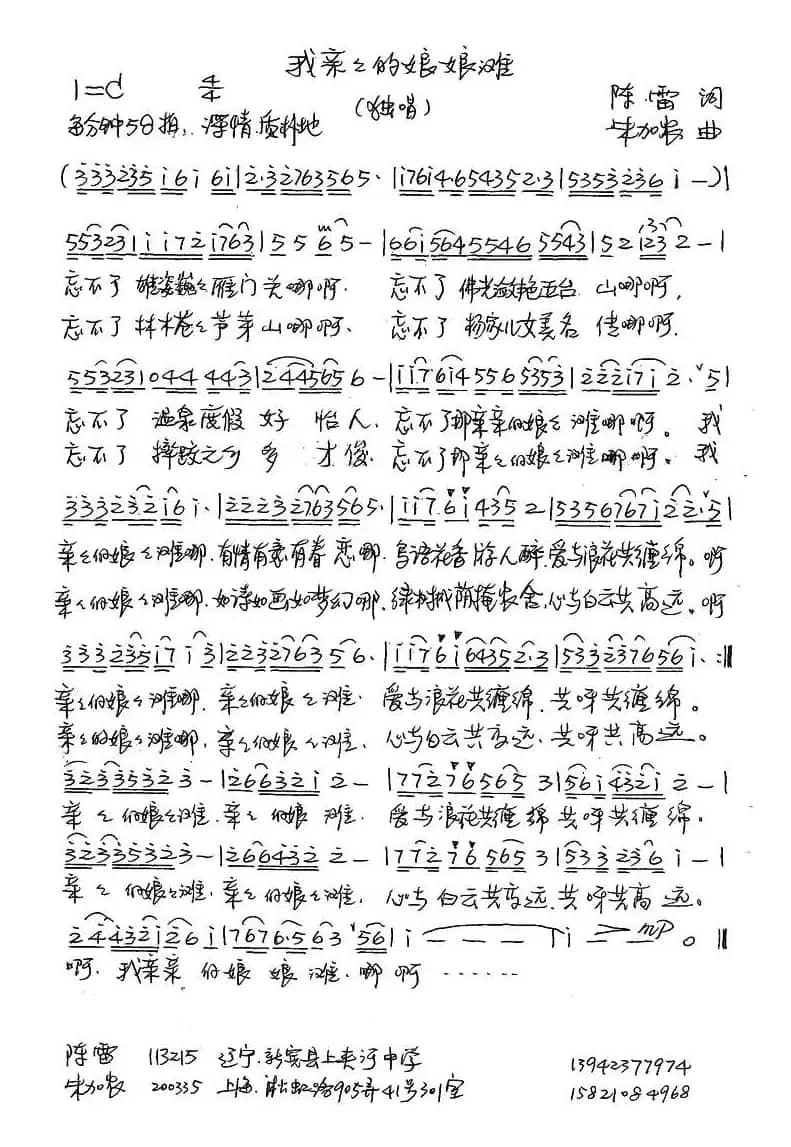 我亲々的娘娘滩
(独唱)
1=C 4/4
陈雷 词
每分钟50拍、深情.质朴地
朱加农 曲
(3332351616|2·32763565·|17614·654352·3|53532361—)|
5532311721763|5565—|661564554655431|521232—|
忘不了 雄姿巍々雁门关哪啊. 忘不了 佛光潋艳五台山哪啊,
忘不了 林木苍々芦芽山哪啊、 忘不了 杨家儿女美名传哪啊.
553231044443|2445656—|1176145565353|2221712·ˇ5|
忘不了 温泉度假好怡人, 忘不了那亲亲的娘々滩哪啊。我
忘不了 摔跤之乡多才俊, 忘不了那亲々的娘々滩哪啊。我
333232161·|22232763565·|117·614352|5356767122·ˇ5|
亲々的娘々滩哪.有情有意有眷恋哪.鸟语花香游人醉,爱与浪花共缠绵。啊
亲々的娘々滩哪.如诗如画如梦幻哪.绿树成荫掩农舍,心与白云共高远。啊
3332351713|223276356·|117616435 2·3|5332376561·:‖
亲々的娘々滩哪.亲々的娘々滩. 爱与浪花共缠绵.共呼共缠绵。
亲々的娘々滩哪.亲々的娘々滩. 心与白云共高远.共呼共高远。
323335323—|2663212—|77276565 3|56143212—|
亲々的娘々滩.亲々的娘滩. 爱与浪花共缠绵 共呼共缠绵.
323335323—|26643 22—|77276565 3|53323 61—|
亲々的娘々滩,亲々的娘々滩, 心与白云共高远.共呼共高远。
2443212 61|7676·563ˇ56|1———|1—— mp 0‖
啊.我亲亲的娘娘滩.哪啊······
陈雷 113215 辽宁.新宾县上夹河中学 13942377974
朱加农 200335 上海.虹路905弄41号301室 15821084968